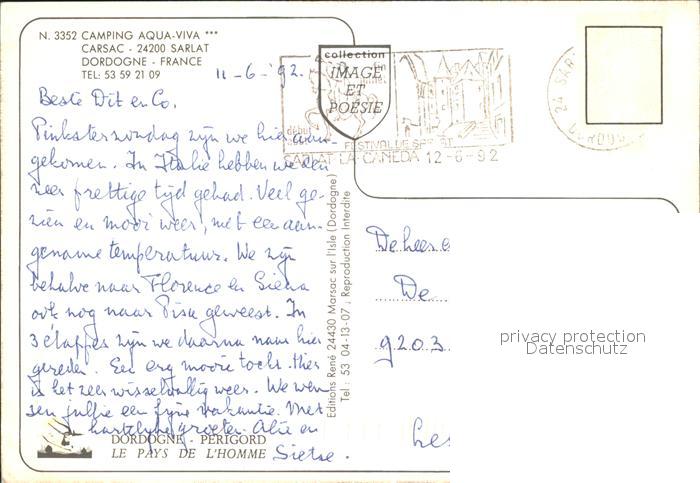 N. 3352 CAMPING AQUA-VIVA ***
CARSAC - 24200 SARLAT
DORDOGNE - FRANCE
TEL: 53 59 21 09
11-6-'92.
collection
IMAGE
ET
POÉSIE
FESTIVAL DE SARLAT
SARLAT LA CANEDA 12-6-92
24 SAR
DORDOGNE
Beste Dit en Co.
Pinksterzondag zijn we hier aan-
gekomen. In Italië hebben we een
zeer prettige tijd gehad. Veel ge-
zien en mooi weer, met een aan-
gename temperatuur. We zijn
behalve naar Florence en Siena
ook nog naar Pisa geweest. In
3 etappes zijn we daarna naar hier
gereden. Een erg mooie tocht. Hier
is het zeer wisselvallig weer. We wen-
sen jullie een fijne vakantie. Met
hartelijke groeten. Alie en
Sietse.
DORDOGNE - PÉRIGORD
LE PAYS DE L'HOMME
Editions René 24430 Marsac sur l'Isle (Dordogne)
Tel : 53 04-13-07 , Reproduction Interdite
De heer e
De
9203
privacy protection
Datenschutz